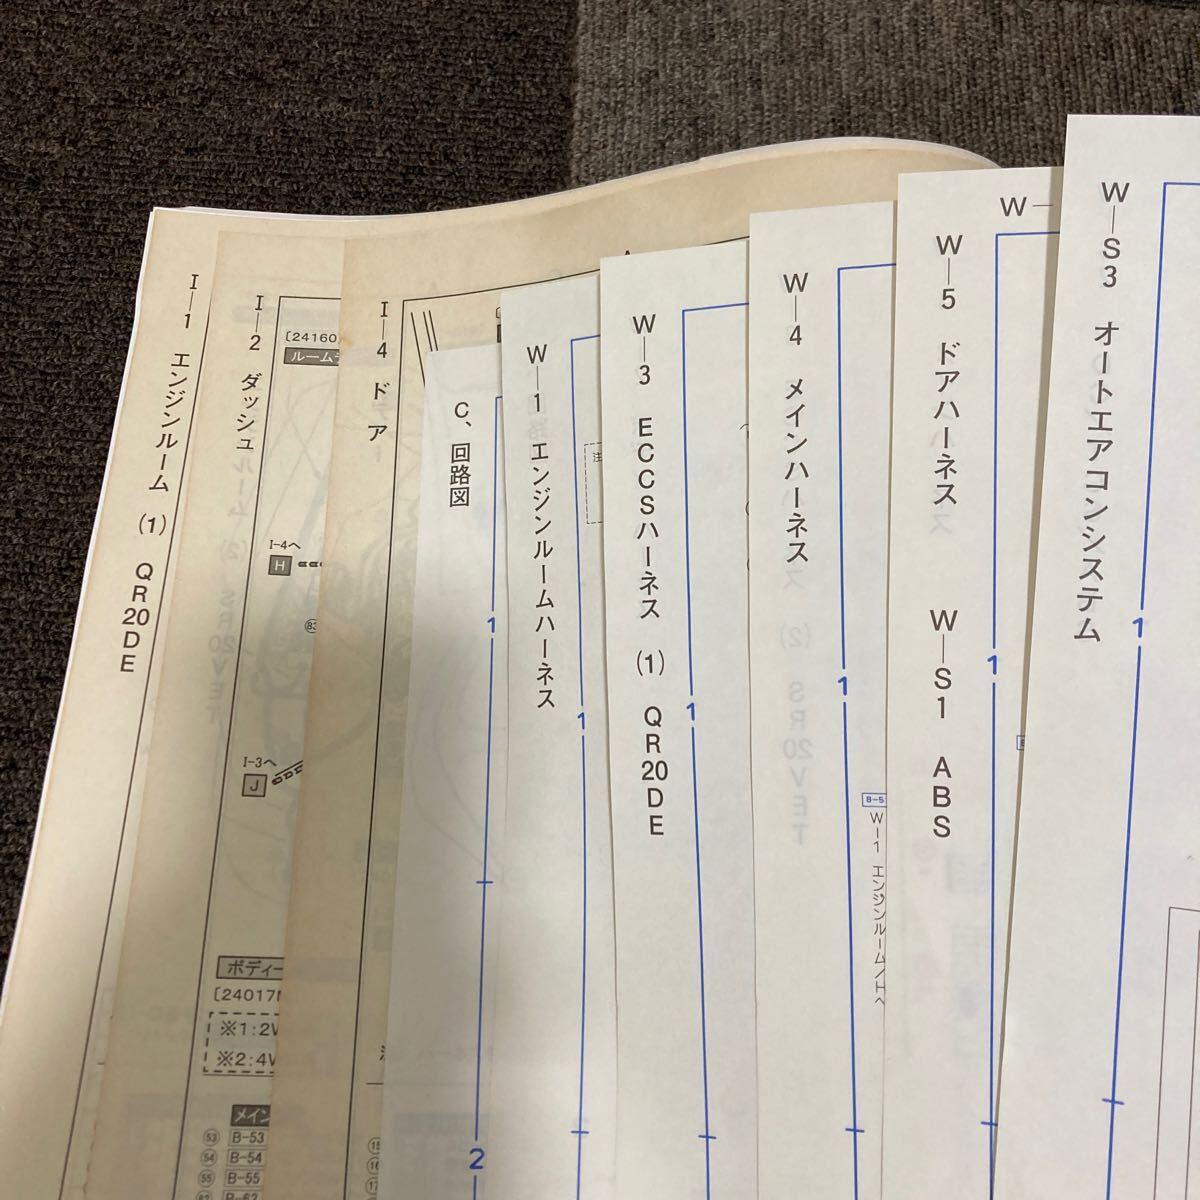 I―1 エンジンルーム (1) QR20DE
I―2 ダッシュ
[24160
ルーム
I-4へ
H
I-3へ
J
ボディー
[24017
※1:2W
※2:4W
メイン
53 B-53
54 B-54
55 B-55
B-62
I―4 ドア
A
15
16
17
C、回路図
1
2
W―1 エンジンルームハーネス
注
1
W―3 ECCSハーネス (1) QR20DE
1
W―4 メインハーネス
1
B-5
W―1 エンジンルームノHへ
W―5 ドアハーネス W―S1 ABS
W―
1
W―S3 オートエアコンシステム
1